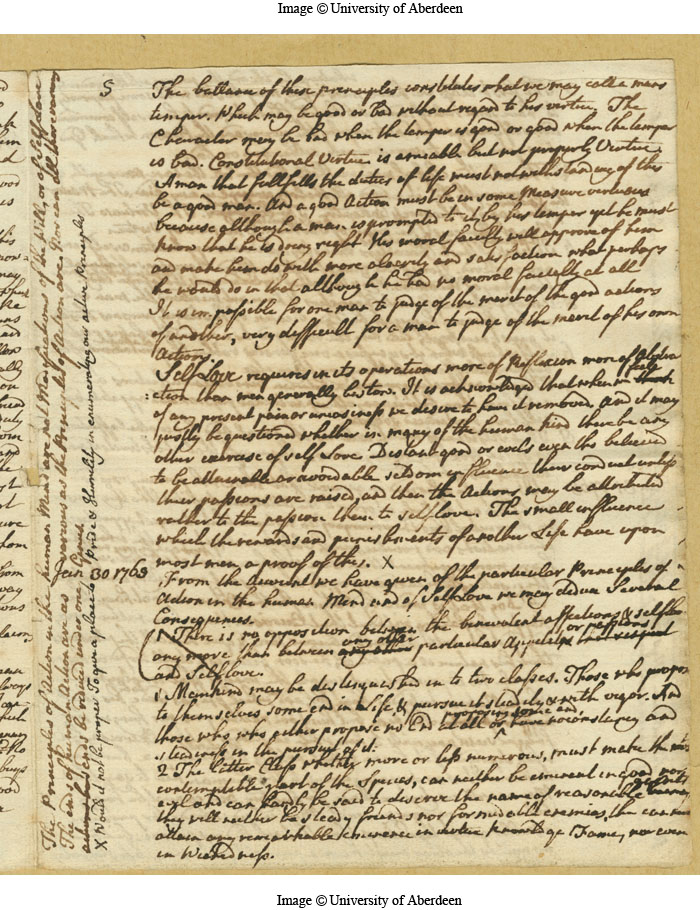 Image © University of Aberdeen
5
The ballance of these principles constitutes what we may call a mans
temper. Which may be good or bad without regard to his virtue. The
Character may be bad when the temper is good or good when the temper
is bad. Constitutional Virtue is amiable but not properly Virtue.
A man that fullfills the duties of life must notwithstanding of this
be a good man. And a good Action must be in some Measure virtuous
because although a man is prompted to it by his temper yet he must
know that he is doing right His moral faculty will approve of him
and make him do with more alacrity and satisfaction what perhaps
he would do in that although he had no moral faculty at all
It is impossible for one man to judge of the merit of the good actions
of another, very difficult for a man to judge of the merit of his own
Actions.
Self Love requires in its operations more of Reflexion more of Abstra
ction than men generally bestow. It is acknowledged that when we feel
of any present pain or uneasiness we desire to have it removed. And it may
justly be questioned whether in many of the human kind there be any
other exercise of self Love Distant good or evils even tho believed
to be attainable or avoidable seldom influence their conduct unless
their passions are raised, and then the Actions may be attributed
rather to the passion than to self love. The small influence
which the rewards and punishments of another Life have upon
most men a proof of this. X
Jan 30 1763
From the Account we have given of the particular Principles of
Action in the human Mind and of Self Love we may deduce Several
Consequences.
There is no opposition between the benevolent affections & self love
any more than between any other particular Appetite or passions
and Self love.
1 Mankind may be distinguished in to two classes. Those who propose
to themselves some end in Life, & pursue it steadily & with vigor. And
those who either propose no End at all or proposing some end have no constancy and
steadiness in the pursuit of it.
2 The latter Class whether more or less numerous, must make the most
contemptible part of the Species, can neither be eminent in good nor
evil and can hardly be said to deserve the name of reasonable
they will neither be steady friends nor formidable enemies, they can never
attain any remarkable eminence in virtue knowledge Fame, nor even
in Wickedness.
The Principles of Action in the human Mind are not Modifications of the Will, or of Self Love
The ends of human Action are as various as the Principles of Action are. Nor can all the various
ends be reduced under one Genus.
X Would it not be proper To give a place to Pride & Humility in enumerating our active Principles
Image © University of Aberdeen